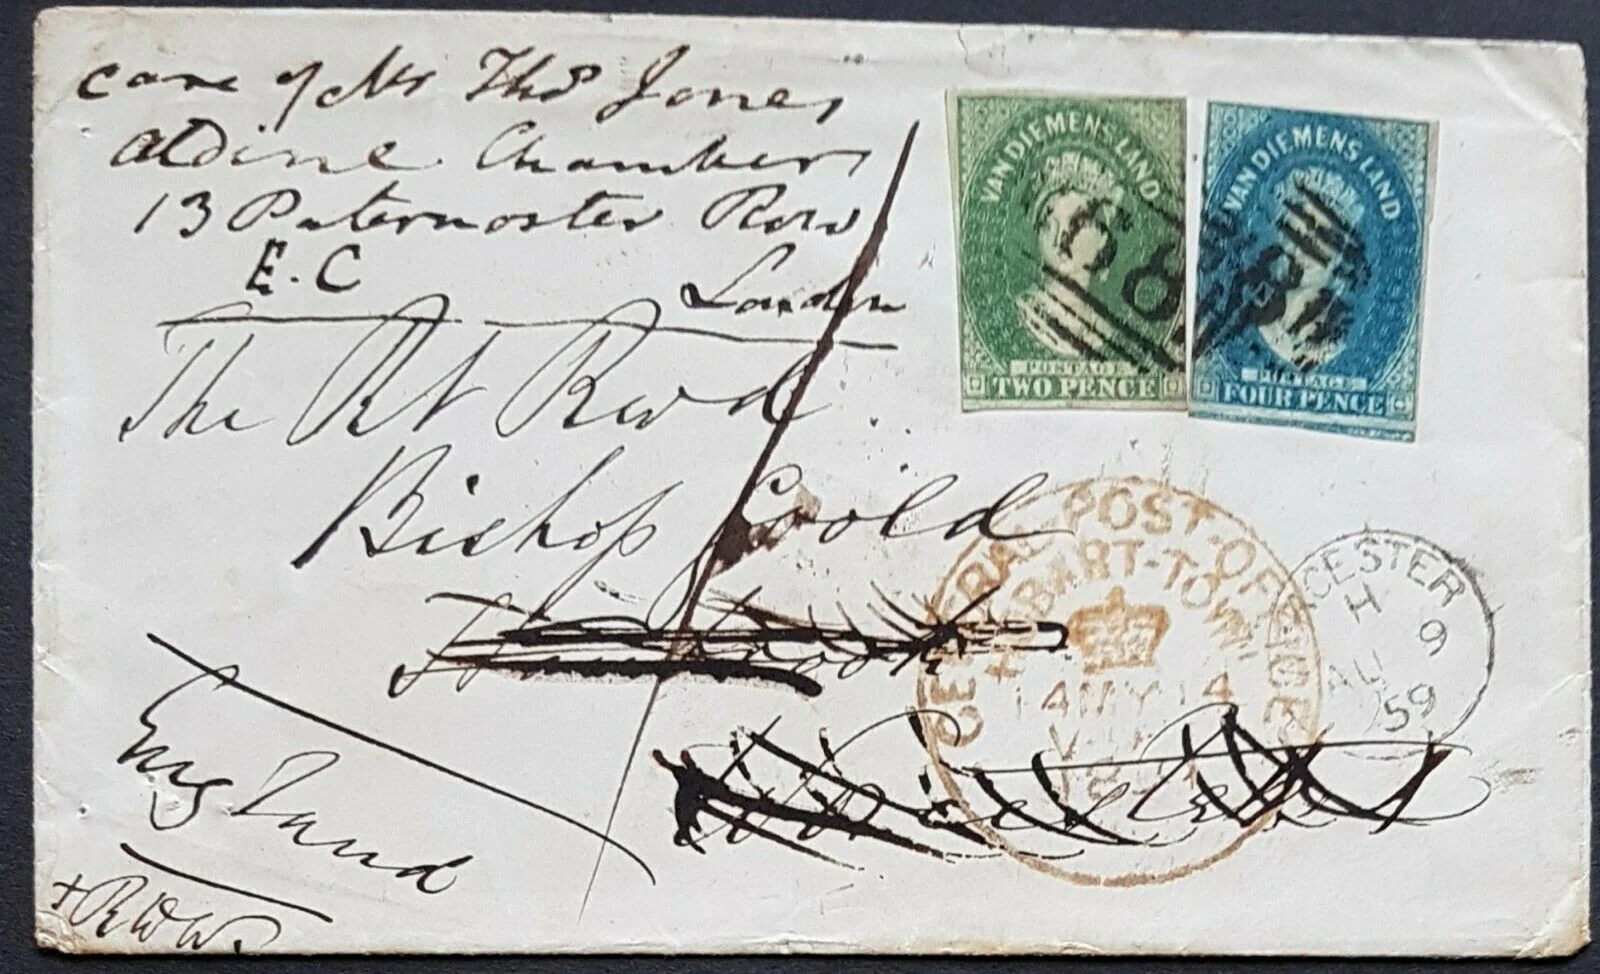 care of Mr Thos Jones
Aldine Chambers
13 Paternoster Row
E.C London
The Rt Revd.
Bishop Goold
England
+ R W W.
VAN DIEMENS LAND
68
POSTAGE
TWO PENCE
VAN DIEMENS LAND
POSTAGE
FOUR PENCE
GENERAL POST-OFFICE
HOBART-TOWN
14 MY 14
CESTER
H
AU 9
59